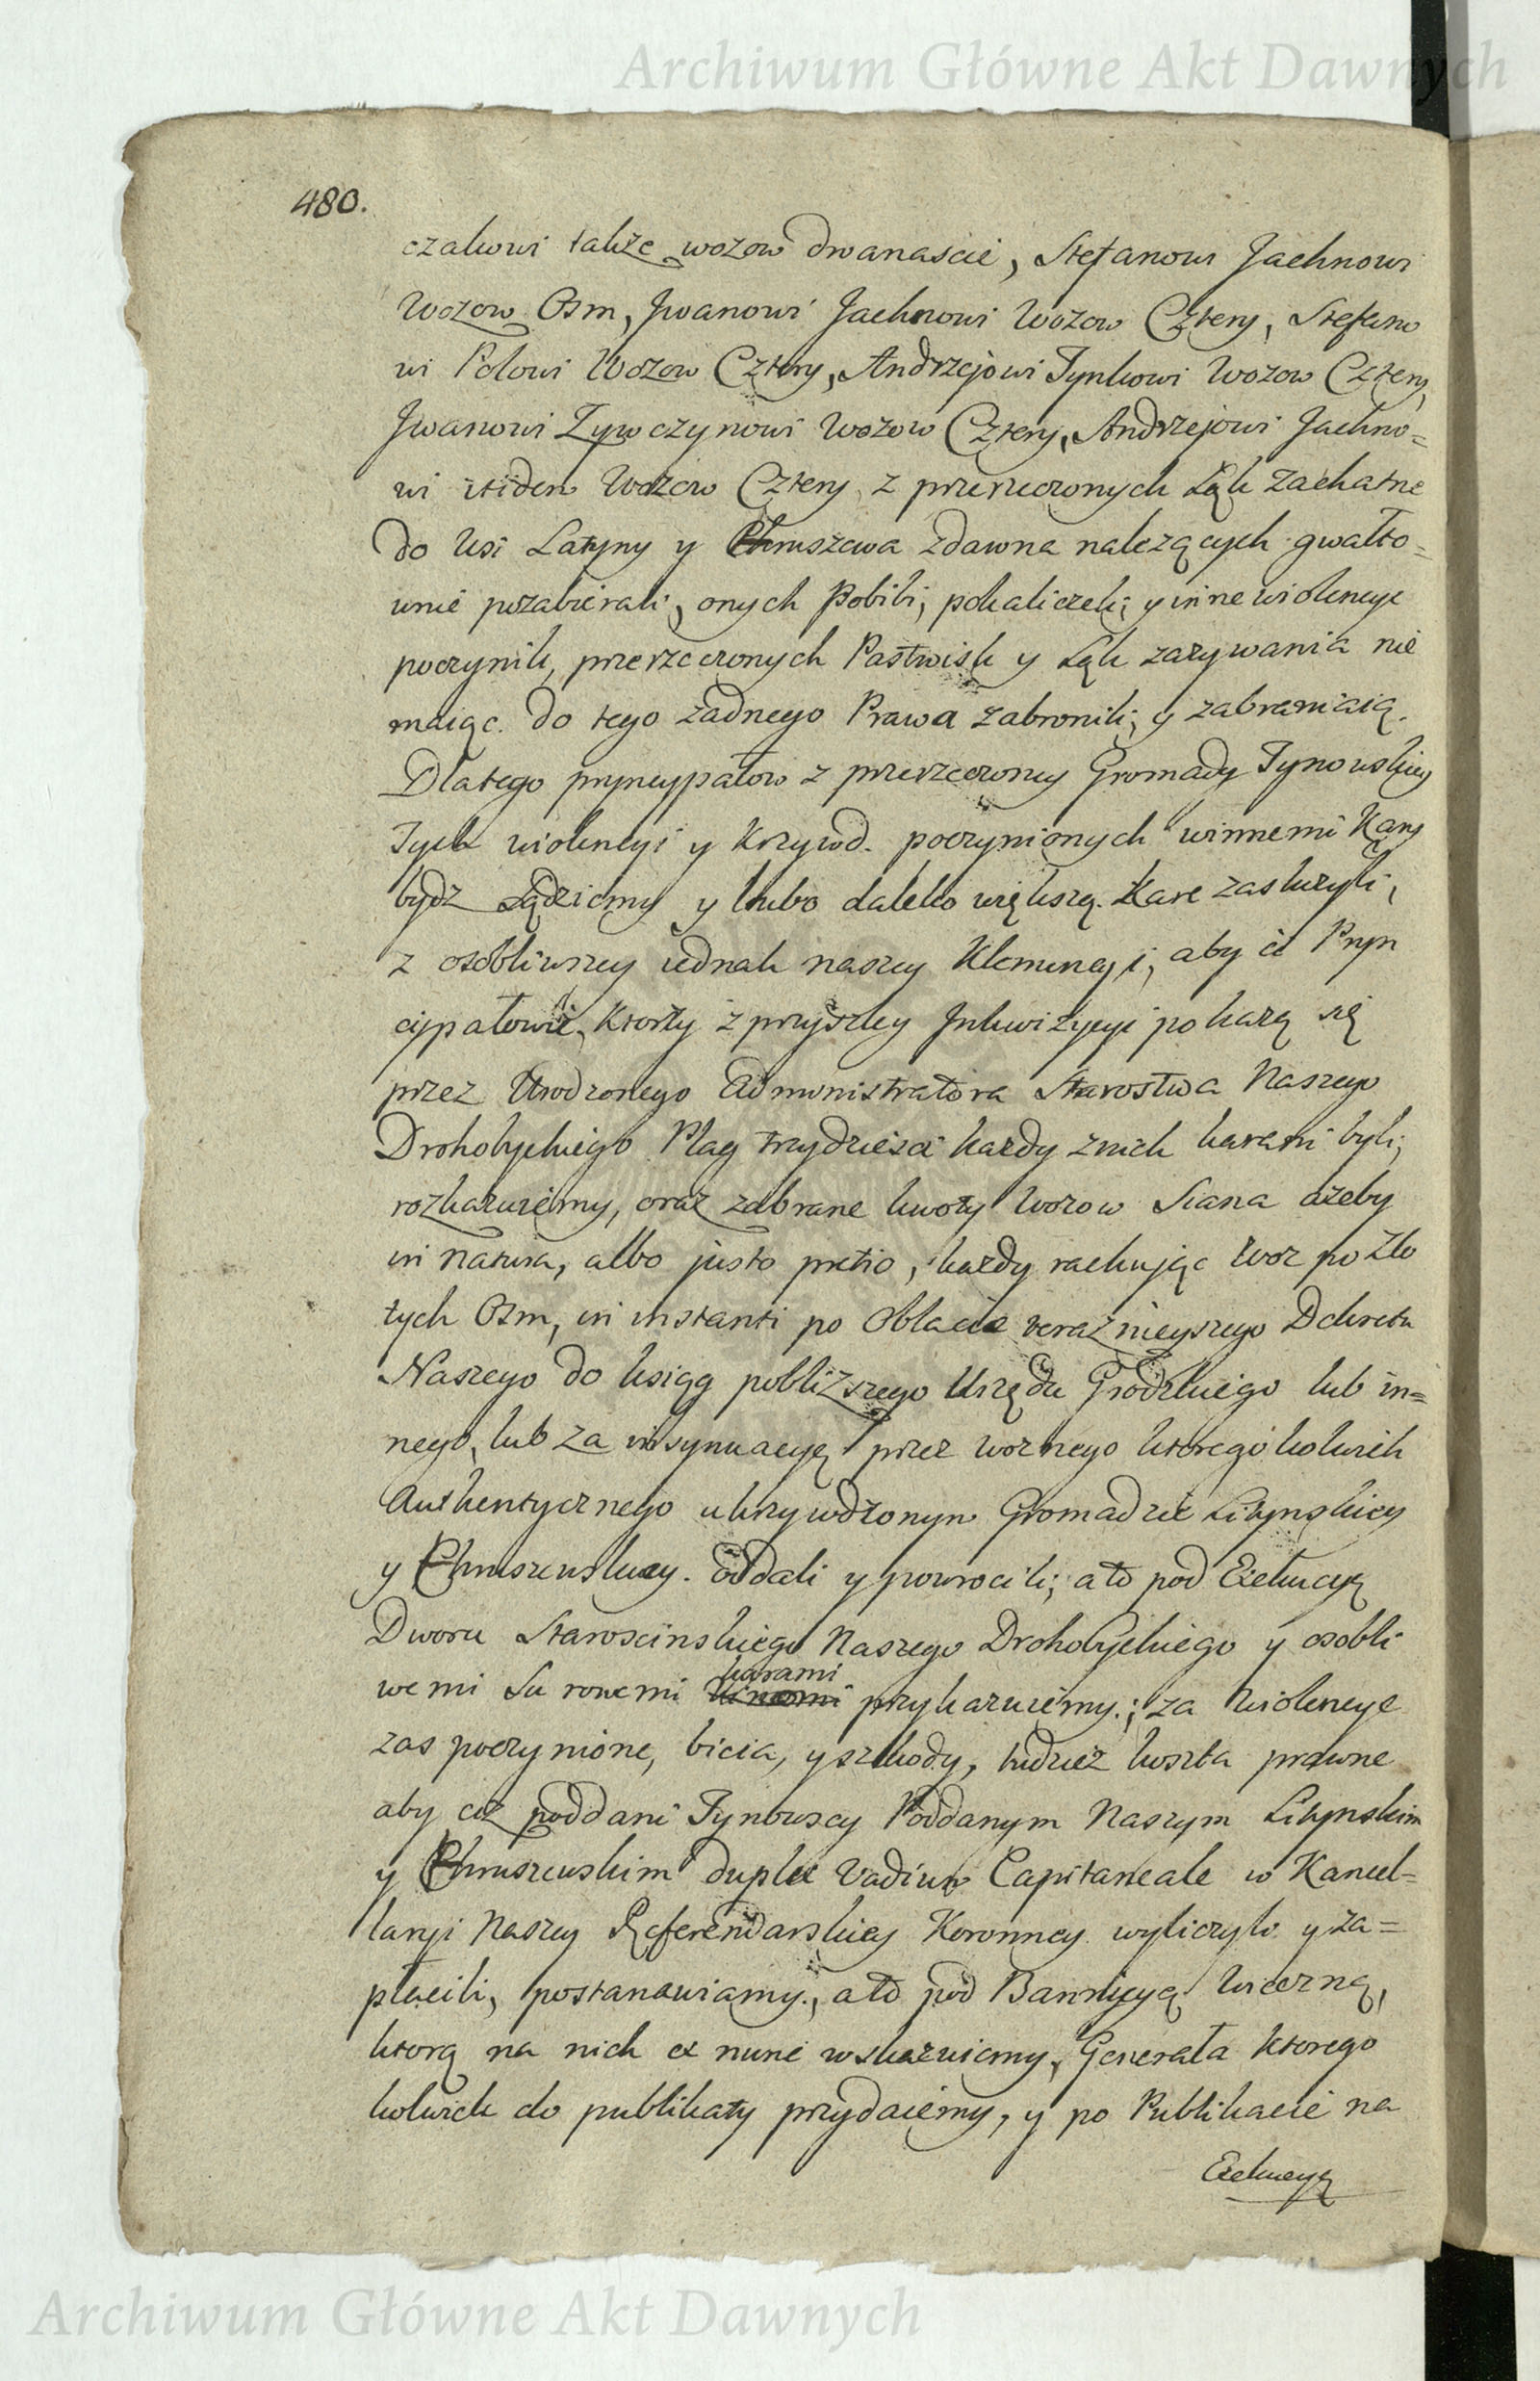 Archiwum Główne Akt Dawnych
480.
czakowi także wozow dwanascie, Stefanowi Jachnowi
Wozow Osm, Jwanowi Jachnowi Wozow Cztery, Stefano
wi Polowi Wozow Cztery, Andrzejowi Tynkowi Wozow Cztery,
Jwanowi Zywczynowi Wozow Cztery, Andrzejowi Jachno=
wi itidem Wozow Cztery z przerzeczonych Łąk
do Wsi Latyny y Chruszewa zdawna należących gwałto=
wnie pozabierali, onych Pobili, pokaliczeli, y inne wiolencye
poczynili, przerzeczonych Pastwisk y Łąk zazywania nie
maiąc do tego żadnego Prawa zabronili, y zabraniaią.
Dlatego pryncypałow z przerzeczoney Gromady Tynowskiey
Tych wiolencyi y Krzywd poczynionych winnemi Kary
bydz sądziemy y lubo daleko większą Kare zasłużyli,
z osobliwszey iednak naszey Klemencyi, aby ci Pryn
cypałowie, Ktorzy z przyszłey Jnkwizycyi pokażą się
przez Urodzonego Administratora Starostwa Naszego
Drohobyckiego Plag trzydzieści każdy z nich karani byli,
rozkazuiemy, oraz zabrane kwoty Wozow Siana ażeby
in natura, albo justo pretio, każdy rachując woz po Zło
tych Osm, in instanti po Oblacie teraznieyszego Dekretu
Naszego do ksiąg pobliższego Urzędu Grodzkiego lub in=
nego, lub za insynuacyą przez woznego ktoregokolwiek
Authentycznego ukrzywdzonym Gromadzie Litynskiey
y Chruszewskiey. oddali y powrocili, a to pod Exekucyą
Dworu Starościnskiego Naszego Drohobyckiego y osobli
wemi Surowemi karami przykazuiemy; za Wiolencye
zas poczynione, bicia, y szkody, tudzież koszta prawne
aby ciż poddani Tynowscy Poddanym Naszym Litynskim
y Chruszewskim duplex Vadium Capitaneale w Kancel=
laryi Naszey Referendarskiey Koronney wyliczyli y za=
płacili, postanawiamy, a to pod Bannicyą Wieczną,
ktorą na nich ex nunc wskazuiemy, Generała ktorego
kolwiek do publikaty przydaiemy, y po Publikacie na
Exekucyą
Archiwum Główne Akt Dawnych